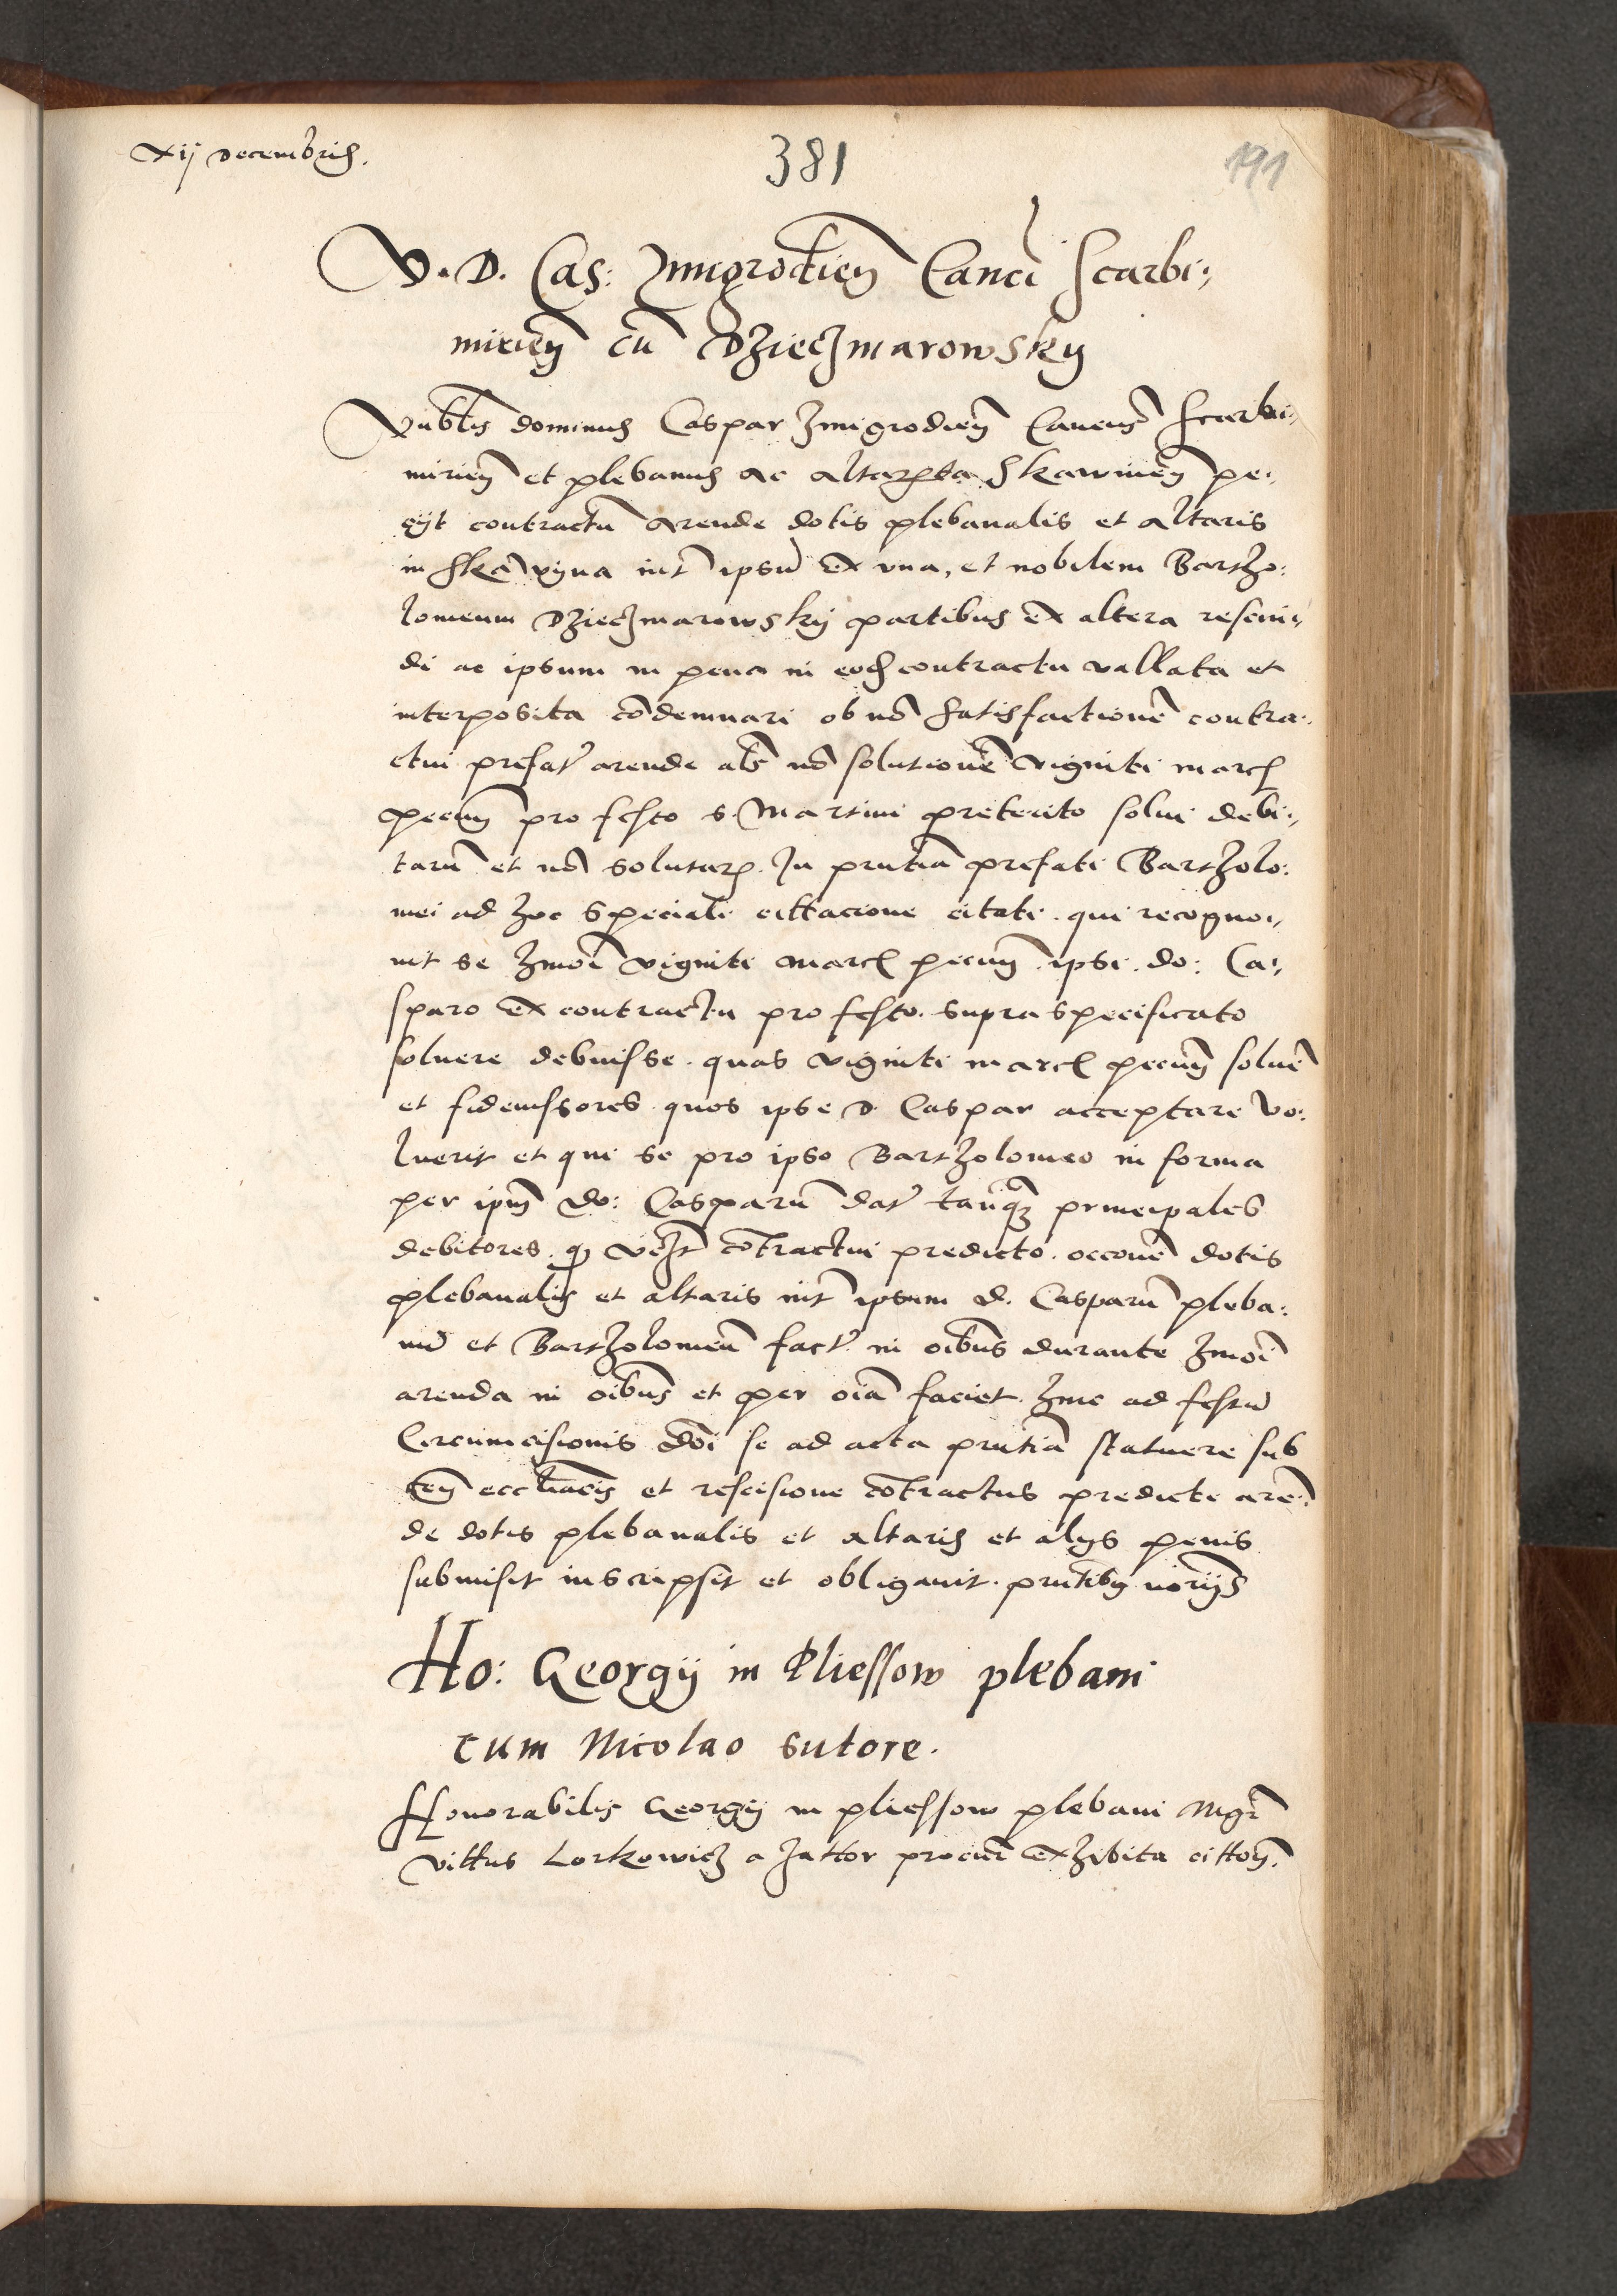 xij decembris.
381
191
V. D. Cas: Zmigrodien Canci Scarbi:
mirien cu Dzieczmarowsky
Vnblis dominus Caspar Zmigrodien Canens Scarbi:
mirien et plebanus ac altarista Skawinen pe:
cyt contractu arende dotis plebanalis et altaris
in Skawyna int ipsu ex vna, et nobilem Bartho:
lomeum Dzieczmarowsky partibus ex altera rescin:
di ac ipsum in pena in eod contractu vallata et
interposita condemnari ob no satisfactione contra:
ctui prefat arende als no solutione viginti marc
pecun pro festo s. Martini preterito solui debi:
taru et no solutar. In pntia prefati Bartholo:
mei ad hoc speciali cittacione citati. qui recogno:
uit se hmoi viginti marc pecun ipsi do: Ca:
sparo ex contractu pro festo supraspecificato
soluere debuisse. quas viginti marc pecun soluet
et fideiussores quos ipse D. Caspar acceptare vo:
luerit et qui se pro ipso Bartholomeo in forma
per ipm do: Casparu dat tanq principales
debitores. contractui predicto dotis
plebanalis et altaris int ipsum d. Casparu pleba:
nu et Bartholomeu fact in oibus durante hmoi
arenda in oibus et per oia faciet. hinc ad festu
Circumcisionis doi se ad acta pntia statuere sub
cen eccliacis et rescisione contractus predicte aren:
de dotis plebanalis et altaris et alys penis
submisit inscripsit et obligauit. pntibus
Ho: Georgij in Pliessow plebani
cum Nicolao sutore.
Honorabilis Georgij in pliessow plebani Mgr
Vittus Lorkowicz a Zattor procur exhibita citton.